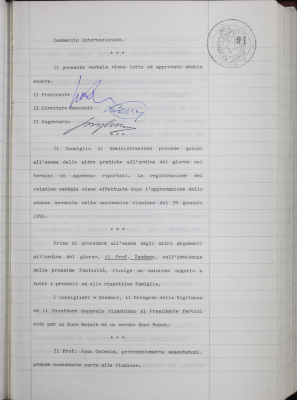 Commercio Internazionale.
* * *
Il presente verbale viene letto ed approvato seduta
stante.
Il Presidente
Il Direttore Generale
Il Segretario
* * *
Il Consiglio di Amministrazione procede quindi
all'esame delle altre pratiche all'ordine del giorno nei
termini in appresso riportati. La registrazione del
relativo verbale viene effettuata dopo l'approvazione dello
stesso avvenuta nella successiva riunione del 25 gennaio
1991.
* * *
Prima di procedere all'esame degli altri argomenti
all'ordine del giorno, il Prof. Zandano, nell'imminenza
delle prossime festività, rivolge un caloroso augurio a
tutti i presenti ed alle rispettive famiglie.
I Consiglieri e Sindaci, il Delegato della Vigilanza
ed il Direttore Generale ricambiano al Presidente fervidi
voti per un Buon Natale ed un sereno Anno Nuovo.
* * *
Il Prof. Jona Celesia, precedentemente assentatosi,
prende nuovamente parte alla riunione.